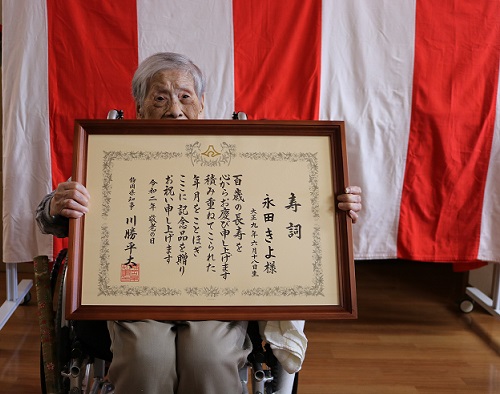 寿詞
永田きよ様
大正九年六月十八日生
百歳の長寿を
心からお慶び申し上げます
積み重ねてこられた
年月をことほぎ
ここに記念品を贈り
お祝い申し上げます
令和二年 敬老の日
静岡県知事 川勝平太